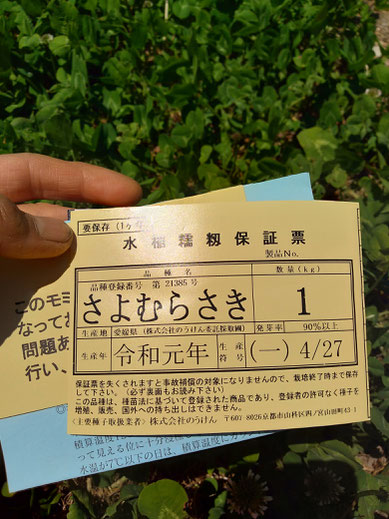 要保存（1ヶ年
水稲糯籾保証票
製品No.
品種名
数量(kg)
品種登録番号 第21385号
さよむらさき
1
生産地
愛媛県（株式会社のうけん委託採取圃）
発芽率
90%以上
生産年
令和元年
生産符号
(一) 4/27
保証票を失くされますと事故補償の対象になりませんので、栽培終了時まで保存
して下さい。（必ず裏面もお読み下さい）
この品種は、種苗法に基づいて登録された商品であり、登録者の許可なく種子を
増殖、販売、国外への持ち出しはできません。
（主要種子取扱業者）株式会社のうけん 〒607-8026京都市山科区四ノ宮山田町43-1
このモミ
なってお
問題あ
行い、
積算温度1
って見える位に十分浸
水温が7℃以下の日は、積算温度に